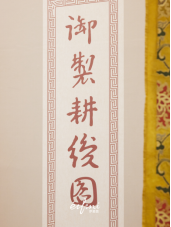 御製耕織圖